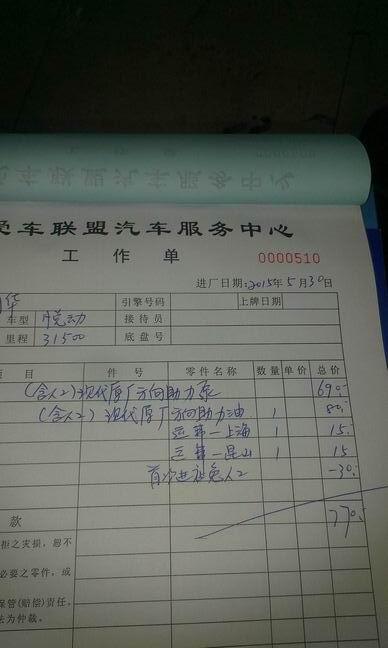 爱车联盟汽车服务中心
工 作 单 0000510
进厂日期:2015年5月30日
华 引擎号码 上牌日期
车型 悦动 接待员
里程 31500 底盘号
项 目 件 号 零件名称 数量 单价 总价
(含人工)现代原厂方向助力泵 690
(含人工)现代原厂方向助力油 1 80
运费-上海 1 15
运费-昆山 1 15
首次进店免人工 -30
款 770
拒之灾损,恕不
必要之零件,或
保管(赔偿)责任,
法为仲裁。